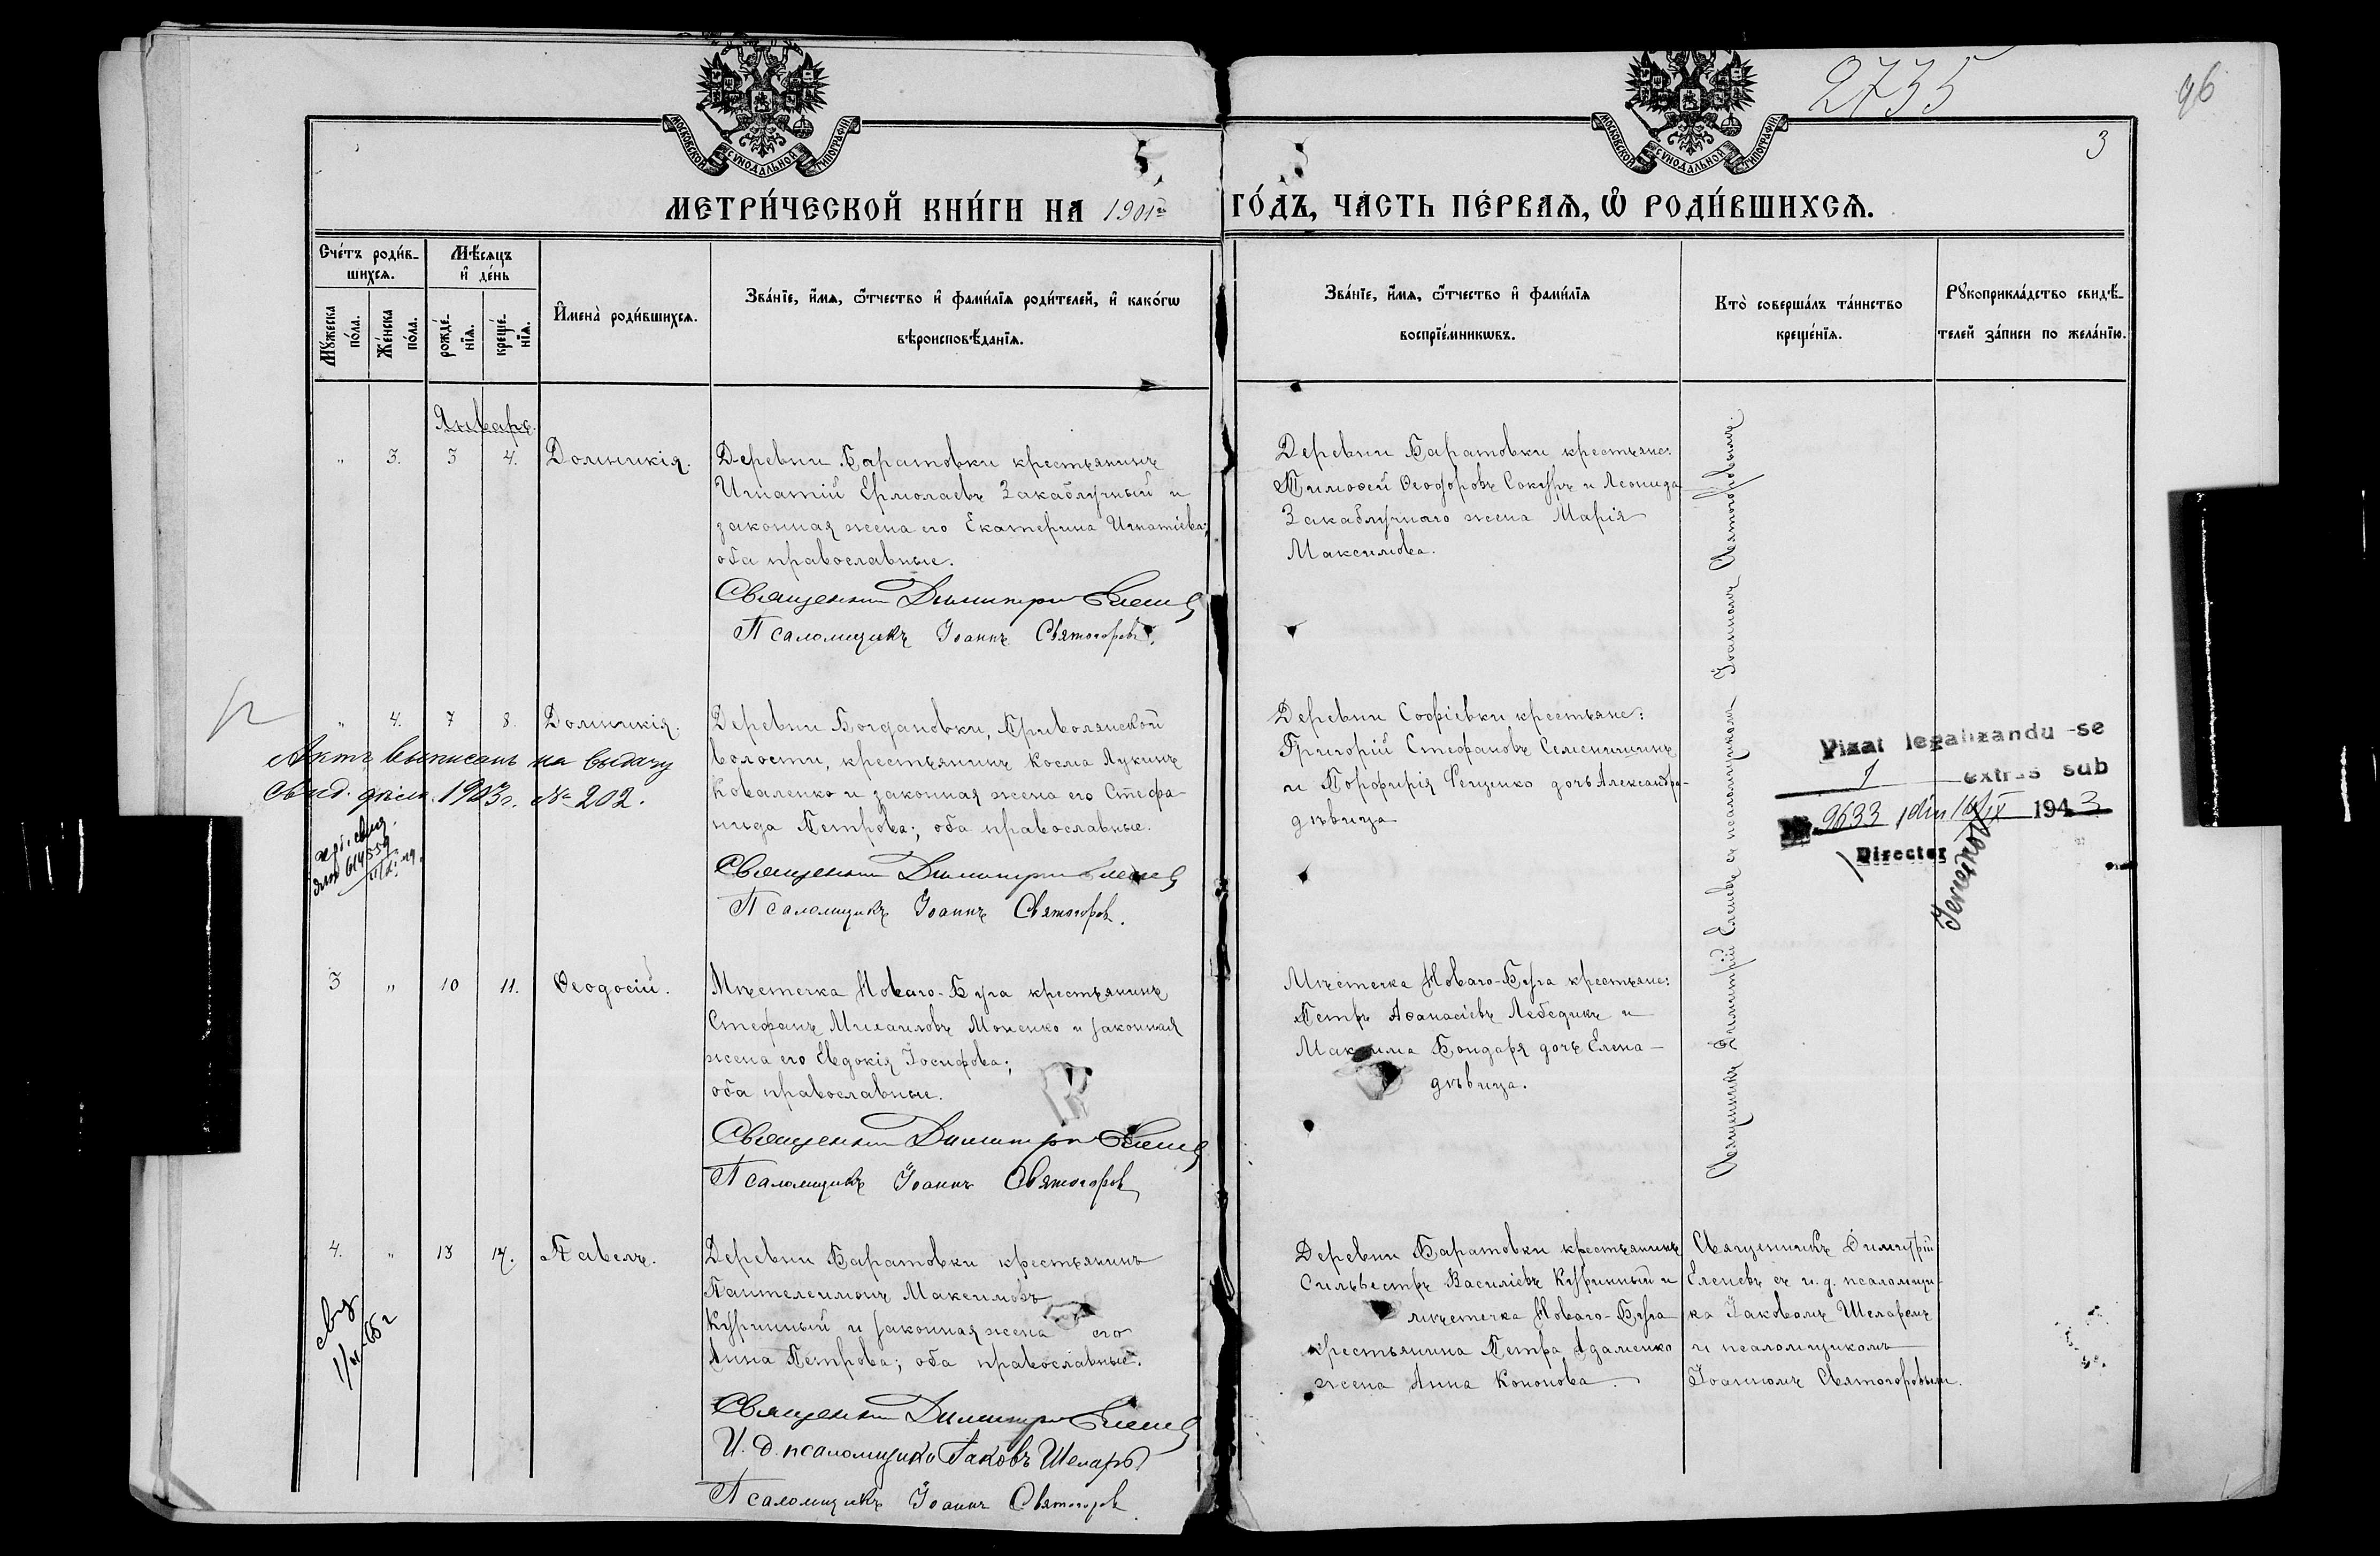 2735
96
3
МОСКОВСКОЙ СѴНОДАЛЬНОЙ ТИПОГРАФІИ
МОСКОВСКОЙ СѴНОДАЛЬНОЙ ТИПОГРАФІИ
МЕТРИ́ЧЕСКОЙ КНИ́ГИ НА 1901й ГО́ДЪ, ЧА́СТЬ ПЕ́РВАѦ, Ѡ҆ РОДИ́ВШИХСѦ.
Сче́тъ роди́в-
шихсѧ.
Мꙋ́жеска по́ла.
Же́нска по́ла.
Мѣ́сяцъ
и҆ де́нь
рожде́-
нїѧ.
креще́-
нїѧ.
И҆мена̀ роди́вшихсѧ.
Зва́нїе, и҆́мѧ, ѻ҆́тчество и҆ фами́лїѧ роди́телей, и҆ како́гѡ
вѣроисповѣ́данїѧ.
Зва́нїе, и҆́мѧ, ѻ҆́тчество и҆ фами́лїѧ
воспрїе́мникѡвъ.
Кто̀ соверша́лъ та́инство
креще́нїѧ.
Рꙋкоприкла́дство свидѣ́-
телей за́писи по жела́нїю.
Январь.
" 3. 3 4. Домникія.
Деревни Баратовки крестьянинъ
Игнатій Ермолаевъ Закаблучный и
законная жена его Екатерина Игнатіева;
оба православные.
Священникъ Димитрій Еленевъ
Псаломщикъ Іоаннъ Святогоровъ.
Деревни Баратовки крестьяне:
Тимоѳей Ѳеодоровъ Сокуръ и Леонида
Закаблучнаго жена Марія
Максимова.
Священникъ Димитрій Еленевъ съ псаломщикомъ Іоанномъ Святогоровымъ.
" 4. 7 8. Домникія.
Деревни Богдановки, Привольнской
волости, крестьянинъ Косма Лукинъ
Коваленко и законная жена его Стефа-
нида Петрова; оба православные.
Священникъ Димитрій Еленевъ
Псаломщикъ Іоаннъ Святогоровъ.
Актъ выписанъ на выдачу
свид. 1923г. № 202.
Деревни Софіевки крестьяне:
Григорій Стефановъ Семенишинъ
и Порфирія Фещенко дочь Александра-
дѣвица
Vizat legalizandu-se
1 extras sub
№ 9633 din 10/IX 1943
Director
3 " 10 11. Ѳеодосій.
Мѣстечка Новаго-Буга крестьянинъ
Стефанъ Михаиловъ Моненко и законная
жена его Евдокія Іосифова;
оба православные.
Священникъ Димитрій Еленевъ
Псаломщикъ Іоаннъ Святогоровъ
Мѣстечка Новаго-Буга крестьяне:
Петръ Аѳанасіевъ Лебедикъ и
Максима Бондаря дочь Елена-
дѣвица.
4. " 13 14. Павелъ.
Деревни Баратовки крестьянинъ
Пантелеимонъ Максимовъ
Куринный и законная жена его
Анна Петрова; оба православные.
Священникъ Димитрій Еленевъ
И. д. псаломщика Іаковъ Шеларь
Псаломщикъ Іоаннъ Святогоровъ
Деревни Баратовки крестьянинъ
Сильвестръ Василіевъ Куринный и
мѣстечка Новаго-Буга
крестьянина Петра Адаменко
жена Анна Кононова.
Священникъ Димитрій
Еленевъ съ и. д. псаломщи-
ка Іаковомъ Шеларемъ
и псаломщикомъ
Іоанномъ Святогоровым.